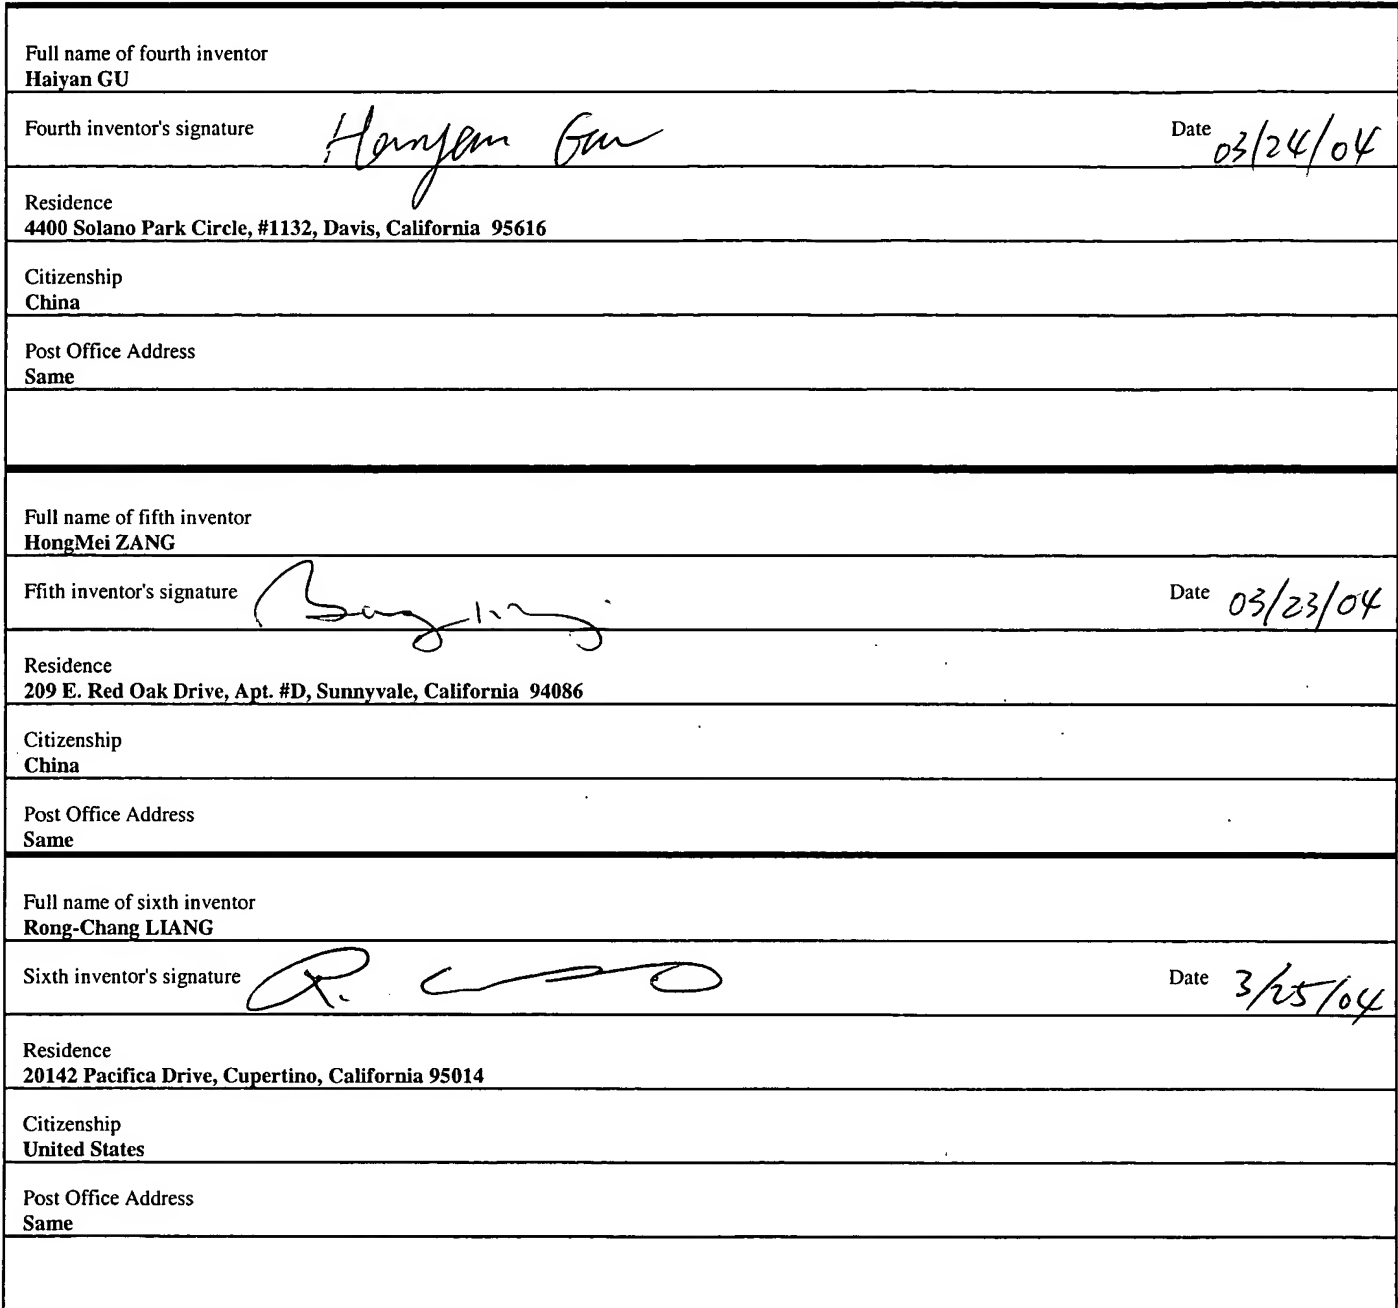 Full name of fourth inventor
Haiyan GU
Fourth inventor's signature Date 03/24/04
Residence
4400 Solano Park Circle, #1132, Davis, California 95616
Citizenship
China
Post Office Address
Same
Full name of fifth inventor
HongMei ZANG
Ffith inventor's signature Date 03/23/04
Residence
209 E. Red Oak Drive, Apt. #D, Sunnyvale, California 94086
Citizenship
China
Post Office Address
Same
Full name of sixth inventor
Rong-Chang LIANG
Sixth inventor's signature R. Date 3/25/04
Residence
20142 Pacifica Drive, Cupertino, California 95014
Citizenship
United States
Post Office Address
Same